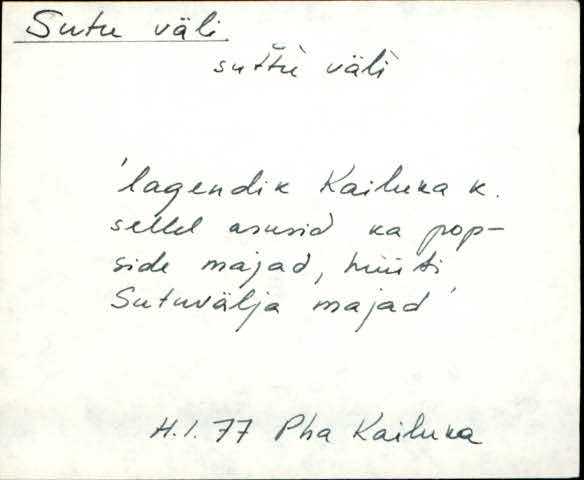 Sutu väli
suttu väli
'lagendik Kailuka k.
sellel asusid ka pop-
side majad, hüüti
Sutuvälja majad'
H.I.77 Pha Kailuka